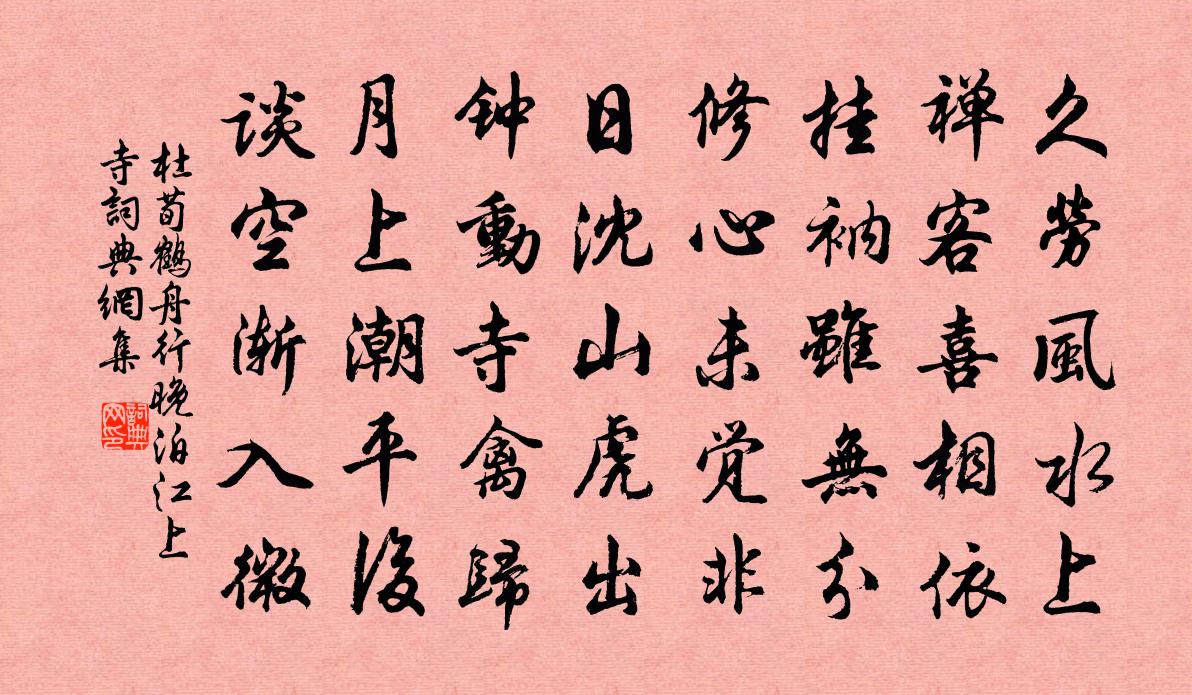 久劳風水上
禅客喜相依
挂衲雖無分
修心未觉非
日沈山虎出
钟動寺禽歸
月上潮平後
谈空渐入微
杜荀鶴舟行晚泊江上
寺詞典網集
詞典
网印